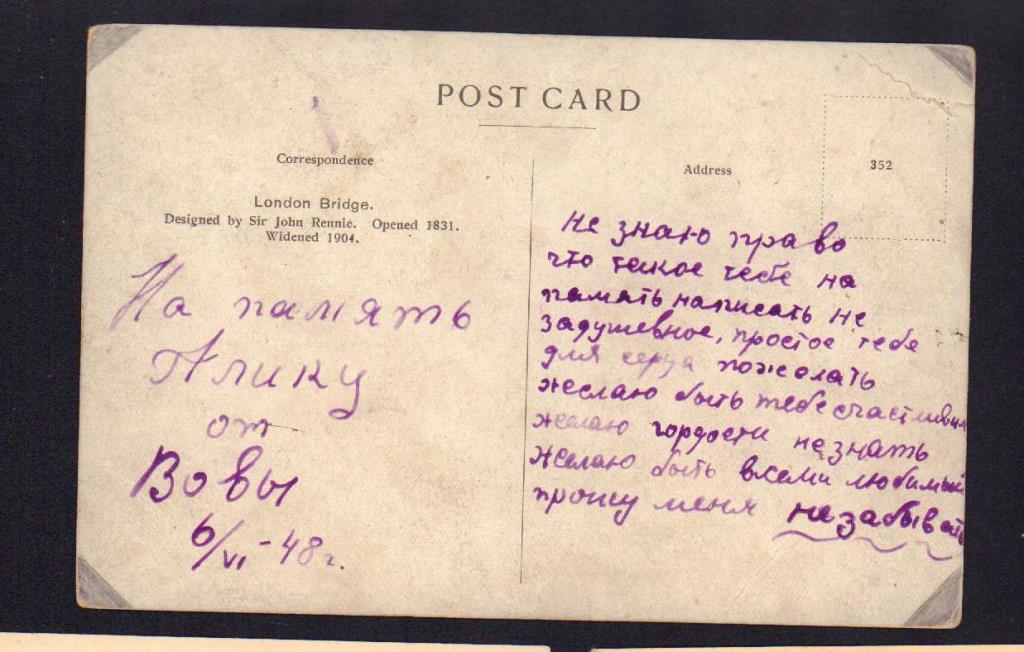 POST CARD
Correspondence
London Bridge.
Designed by Sir John Rennie. Opened 1831.
Widened 1904.
На память
Алику
от
Вовы
6/VI-48 г.
Address
352
Не знаю право
что такое тебе на
память написать не
задушевное, простое тебе
для серца пожелать
желаю быть тебе счастливым
желаю гордости не знать
желаю быть всеми любимый
прошу меня незабывать